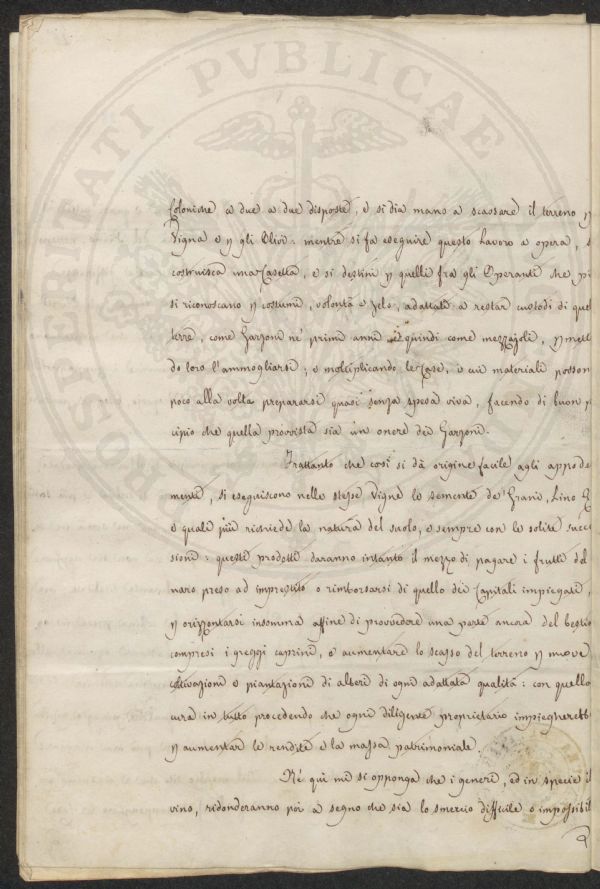 PROSPERITATI PVBLICAE
Coloniche a due a due disposte, e si dia mano a scassare il terreno p
Vigna e p gli Olivi: mentre si fa eseguire questo Lavoro a opera, s
costruisca una Casetta, e si destini p quelli fra gli Operanti che pi
si riconoscano p costumi, volontà e zelo, adattati a restar custodi di quel
terre, come Garzoni ne' primi anni e quindi come mezzajoli, p mett
do loro l'ammogliarsi; e moltiplicando le Case, i cui materiali posson
poco alla volta prepararsi quasi senza spesa viva, facendo di buon p
cipio che quella provvista sia un onere dei Garzoni.
Frattanto che così si dà origine facile agli appode
mente, si eseguiscono nelle stesse Vigne le semente de' Grani, Lino
e quale più richiede la natura del suolo, e sempre con le solite succ
sioni: questi prodotti daranno intanto il mezzo di pagare i frutti del
naro preso ad imprestito o rimborsarsi di quello dei Capitali impiegati,
p orizzontarsi insomma affine di provvedere una parte ancora del bestio
compresi i greggi caprini, e aumentare lo scasso del terreno p nuove
coltivazioni e piantazioni di alberi di ogni adattata qualità: con quello
cura in tutto procedendo che ogni diligente proprietario impiegherebb
p aumentar le rendite e la massa patrimoniale.
Nè quì mi si opponga che i generi, ed in specie il
vino, ridonderanno poi a segno che sia lo smercio difficile o impossibil